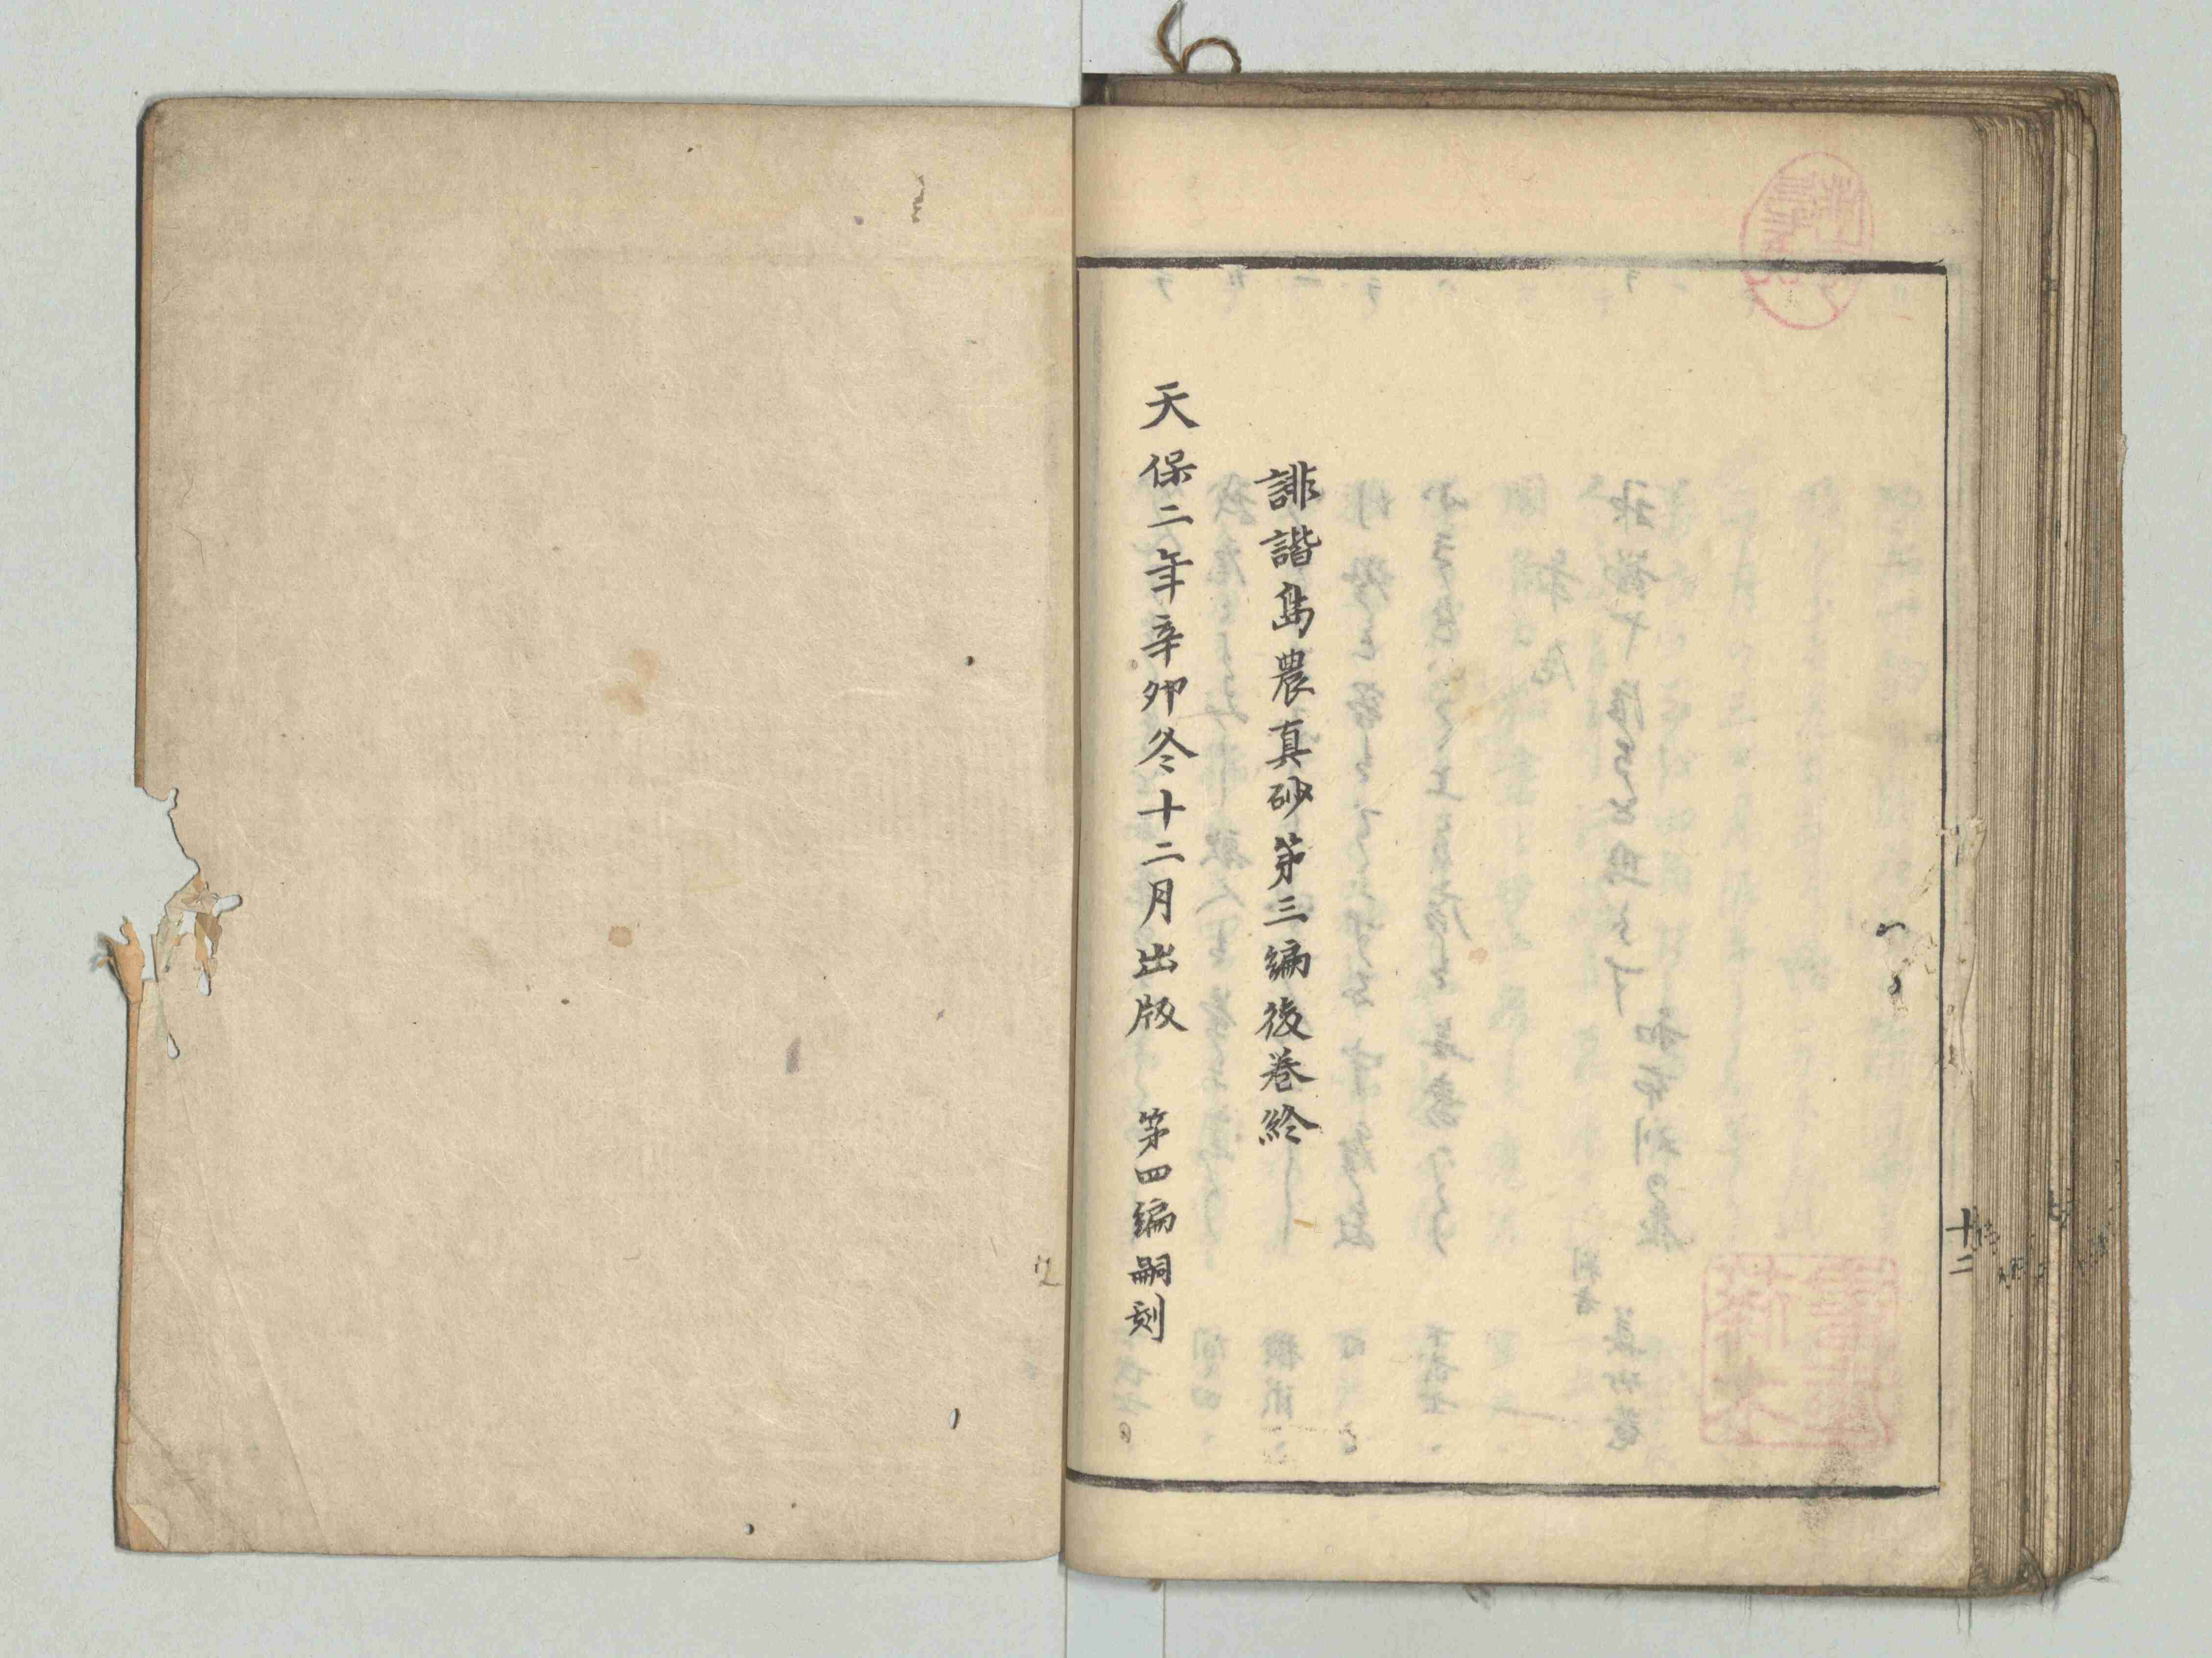 誹諧島農真砂第三編後巻終
天保二年辛卯冬十二月出版　第四編嗣刻
十二